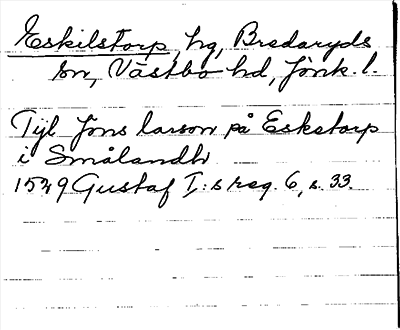 Eskilstorp, hg, Bredaryds
sn, Västbo hd, Jönk. l.
Tijl Jöns larson på Eskstorp
i Smålandh
1529 Gustaf I:s reg. 6, s. 33.